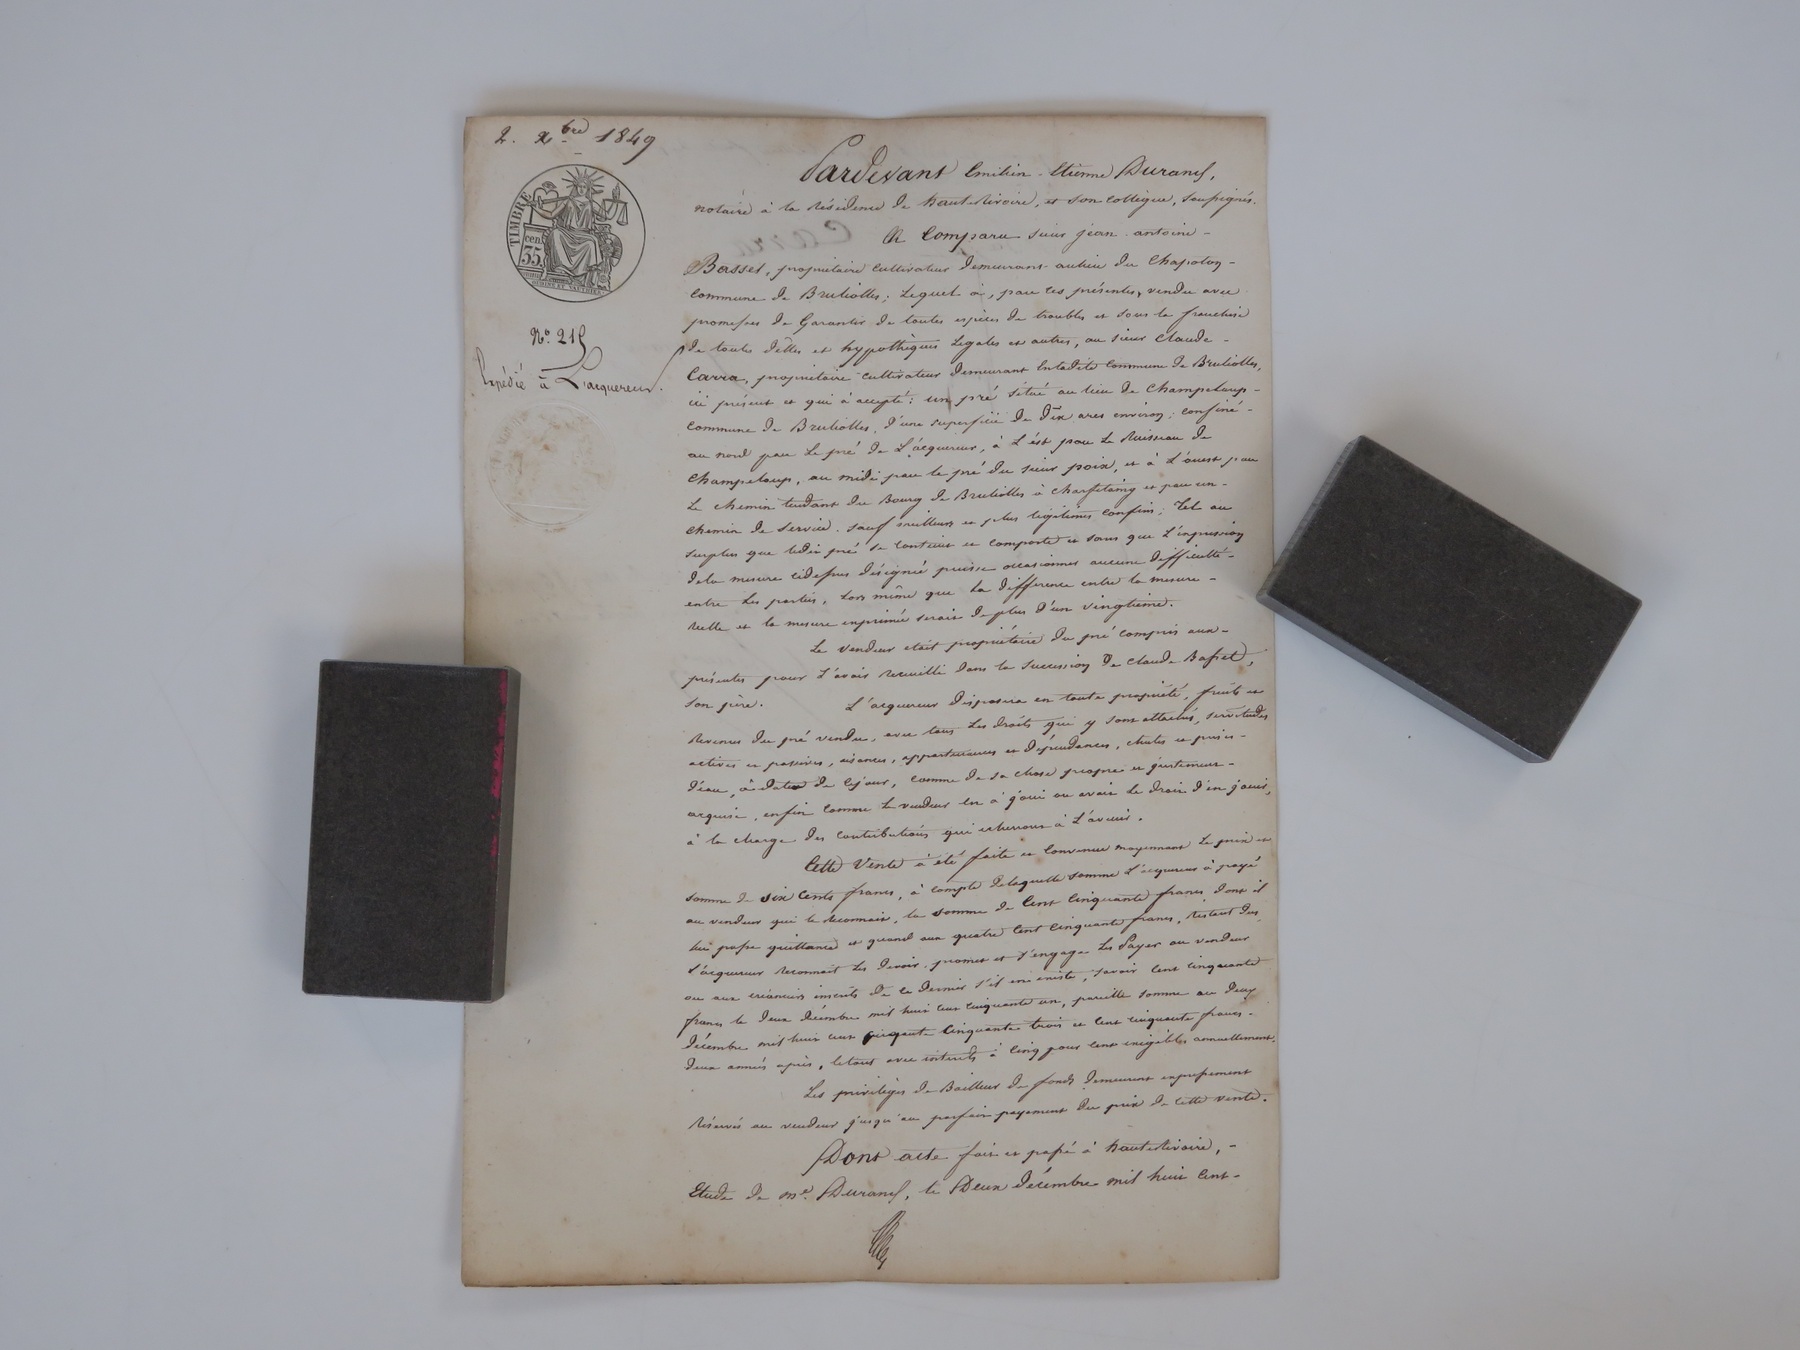 2. xbre 1849
TIMBRE
cen.
35
N° 215
Expédié à L'acquereur.
Pardevant Emilien Etienne Durand,
notaire à la Résidence de haut-Rivoire, et son collègue, soussignés.
A Comparu sieur jean antoine
Basset, propriétaire cultivateur demeurant au lieu du Chapoton
commune de Brulioltes; Lequel à, par ces présentes, vendu avec
promesses de Garantir de toutes espèces de troubles et sous la franchise
de toutes dettes et hypothèques Légales et autres, au sieur Claude
Carra, propriétaire cultivateur demeurant Entadite Commune de Brulioltes,
ici présent et qui à accepté: un pré situé au lieu de Champeloup
commune de Brulioltes, d'une superficie de dix ares environ; confiné
au nord par Le pré de L'acquereur, à L'ést par Le Ruisseau de
Champeloup, au midi par le pré du sieur poix, et à L'ouest par
Le chemin tendant du Bourg de Brulioltes à et par un
chemin de service. sauf meilleurs et plus légitimes confins; Tel au
surplus que ledit pré se contient et comporte et sans que L'expression
dela mesure cidessus désignée puisse occasionner aucune difficulté
entre Les parties, Lors même que La différence entre la mesure
réelle et la mesure exprimée serait de plus d'un vingtième.
Le vendeur était propriétaire du pré compris aux
présentes pour L'avoir recueilli dans la succession de Claude Basset,
son père. L'acquereur disposera en toute propriété, fruits et
Revenus du pré vendu, avec tous Les droits qui y sont attachés, servitudes
actives et passives, aisances, appartenances et dépendances, chutes et prises
d'eau, à dater de cejour, comme de sa chose propre et justement
acquise, enfin comme Le vendeur en à joui ou avait Le droit d'en jouir,
à la charge des contributions qui écherront à L'avenir.
Cette Vente à été faite et Convenue moyennant Le prix et
somme de six Cents francs, à compte delaquelle somme L'acquereur à payé
au vendeur qui le reconnait, la somme de Cent Cinquante francs dont il
lui passe quittance et quand aux quatre Cent Cinquante francs, restant dus,
L'acquereur Reconnait Les devoir promet et s'engage Les Payer au vendeur
ou aux créanciers inscrits de ce dernier s'il en existe, savoir Cent cinquante
francs le deux décembre mil huit cent cinquante un, pareille somme au deux
décembre mil huit cent Cinquante trois et Cent cinquante francs
deux années après, letout avec intérêts à Cinq pour Cent exigibles annuellement.
Les privilèges de Bailleur de fonds demeurent expressément
réservés au vendeur jusqu'au parfait payement du prix de cette vente.
Dont acte fait et passé à haut-Rivoire,
Etude de Me. Durand, le Deux décembre mil huit Cent